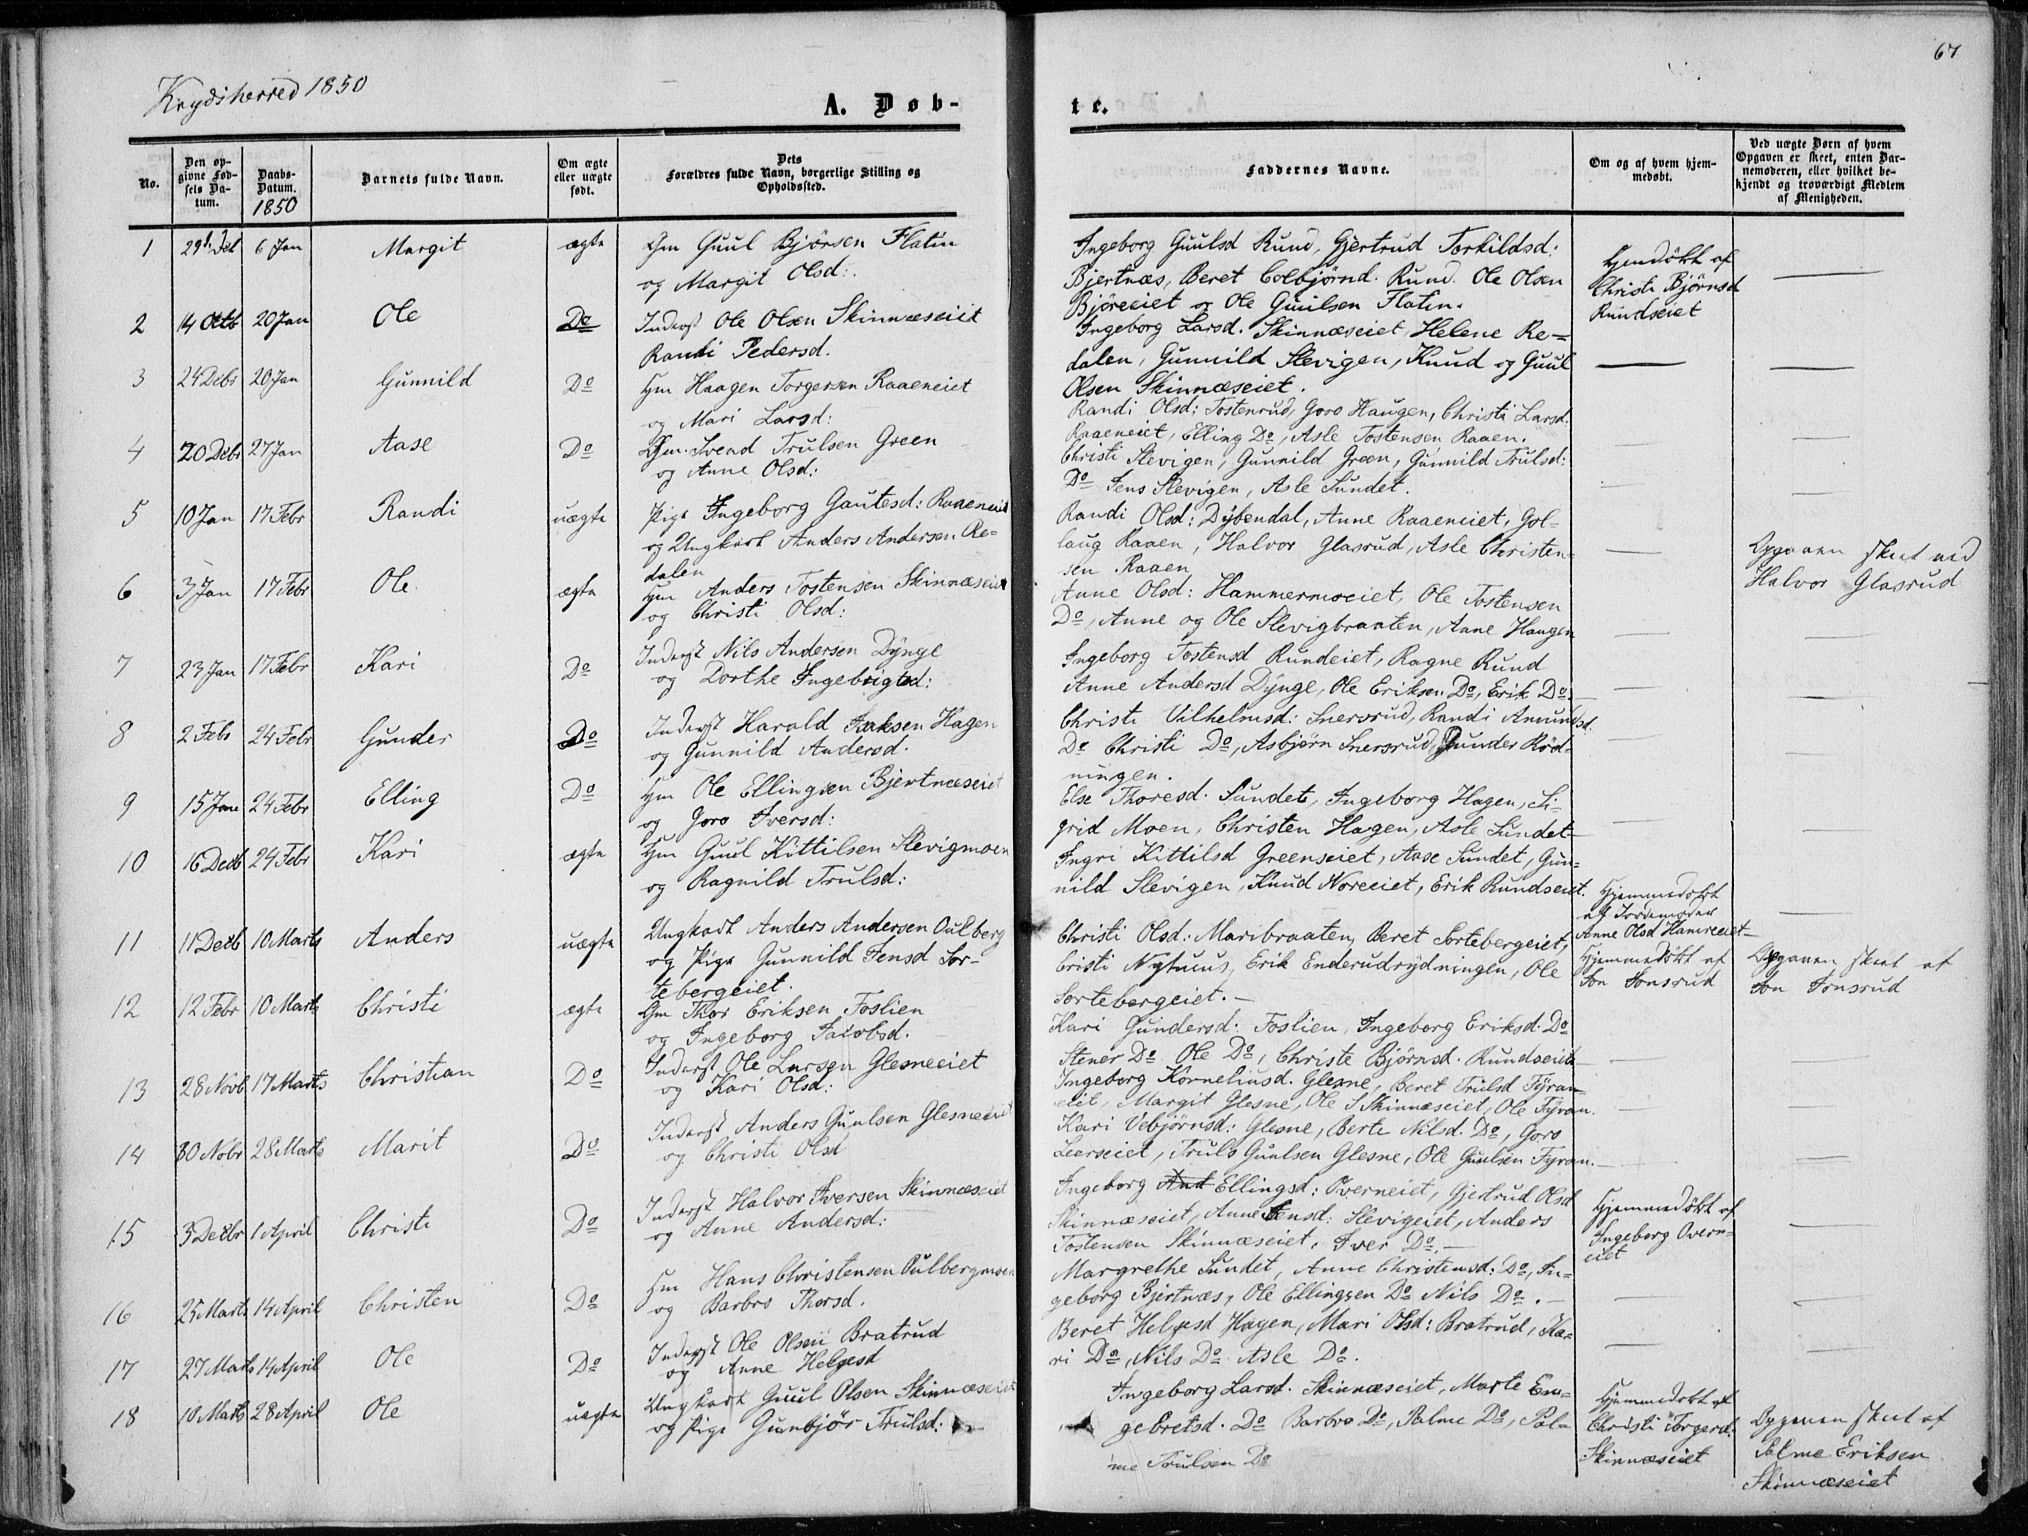 67
Krydsherred 1850
A. Døb-
te.
No.
Den op-
givne Fød-
sels Da-
tum.
Daabs-
Datum.
1850
Barnets fulde Navn.
Om ægte
eller uægte
født.
Dets
Forældres fulde Navn, borgerlige Stilling og
Opholdssted.
Faddernes Navne.
Om og af hvem hjem-
medøbt.
Ved uægte Børn af hvem
Opgaven er skeet, enten Bar-
nemoderen, eller hvilket be-
kjendt og troværdigt Medlem
af Menigheden.
1 6 Jan Margit ægte Gm Guul Bjørsen Flatin
og Margit Olsd:
Ingeborg Guulsd Rund, Gjertrud Torkildsd:
Bjertnæs, Beret Colbjørnd. Rund. Ole Olsen
Bjøreeiet og Ole Guulsen Flatin.
Hjemdøbt af
Christi Bjørnsd
Rundseiet
2 14 Octb 20 Jan Ole Do Inderst Ole Olsen Skinnæseiet
Randi Pedersd.
Ingeborg Larsd. Skinnæseiet, Helene Re-
dalen, Gunnild Slevigen, Knud og Guul
Olsen Skinnæseiet.
3 24 Debr 20 Jan Gunnild Do Hm Haagen Torgersen Raaeneiet
og Mari Larsd:
Randi Olsd: Tostenrud, Goro Haugen, Christi Larsd:
Raaeneiet, Elling Do, Asle Tostensen Raaen.
4 20 Debr 27 Jan Aase Do Gm Svend Trulsen Green
og Anne Olsd:
Christi Slevigen, Gunnild Green, Gunnild Trulsd:
Do Jens Slevigen, Asle Sundet.
5 10 Jan 17 Febr Randi uægte Pige Ingeborg Gautesd: Raaeneiet
og Ungkarl Anders Andersen Re-
dalen
Randi Olsd: Dybendal, Anne Raaeneiet, Gol-
laug Raaen, Halvor Glasrud, Asle Christen-
sen Raaen
Opgaven skeet ved
Halvor Glasrud
6 3 Jan 17 Febr Ole ægte Hm Anders Tostensen Skinnæseiet
og Christi Olsd:
Anne Olsd: Hammermoeiet, Ole Tostensen
Do, Anne og Ole Slevigbraaten, Anne Haugen
7 23 Jan 17 Febr Kari Do Inderst Nils Andersen Dynge
og Dorthe Ingebrigtsd:
Ingeborg Tostensd Rundeiet, Ragne Rund
Anne Andersd Dynge, Ole Eriksen Do, Erik Do.
8 2 Febr 24 Febr Gunder Do Inderst Harald Isaksen Hagen
og Gunnild Andersd.
Christi Vilhelmsd: Snersrud, Randi Amundsd.
Do Christi Do, Asbjørn Snersrud, Gunder Rød-
ningen.
9 15 Jan 24 Febr Elling Do Hm Ole Ellingsen Bjertnæseiet
og Goro Iversd:
Else Thoresd. Sundet, Ingeborg Hagen, Si-
grid Moen, Christen Hagen, Asle Sundet
10 16 Decb 24 Febr Kari ægte Hm Guul Kittilsen Slevigmoen
og Ragnild Trulsd:
Ingri Kittilsd Greenseiet, Aase Sundet, Gun-
nild Slevigen, Knud Noreeiet, Erik Rundseiet.
Hjemmedøbt
af Jordemoder
Anne Olsd Hamreeiet
11 11 Decb 10 Marts Anders uægte Ungkarl Anders Andersen Oulberg
og Pige Gunnild Jensd Sor-
tebergeiet.
Christi Olsd: Maribraaten, Beret Sortebergeiet,
Cristi Nystuen, Erik Enderudrydningen, Ole
Sortebergeiet.
Hjemmedøbt af
Jon Jonsrud
Opgaven skeet af
Jon Jonsrud
12 12 Febr 10 Marts Christi ægte Gm Thor Eriksen Foslien
og Ingeborg Jacobsd.
Kari Gundersd: Foslien, Ingeborg Eriksd. Do
Stener Do Ole Do, Christe Bjørnsd. Rundseiet
13 28 Novb 17 Marts Christian Do Inderst Ole Larsen Glesneeiet
og Kari Olsd:
Ingeborg Korneliusd. Glesne, Beret Trulsd Fyran-
eiet, Margit Glesne, Ole S Skinnæseiet, Ole Fyran.
14 30 Nobr 28 Marts Marit Do Inderst Anders Guulsen Glesneeiet
og Christi Olsd
Kari Vebjørnsd: Glesne, Berte Nilsd. Do, Goro
Leerseiet, Truls Guulsen Glesne, Ole Guulsen Fyran.
15 3 Decbr 1 April Christi Do Inderst Halvor Iversen Skinnæseiet
og Anne Andersd:
Ingeborg Ellingsd: Overneiet, Gjertrud Olsd
Skinnæseiet, Anne Jensd: Slevigeiet, Anders
Tostensen Skinnæseiet, Iver Do.
Hjemmedøbt af
Ingeborg Overn-
eiet
16 25 Marts 14 April Christen Do Hm Hans Christensen Oulbergmoen
og Barbro Thorsd.
Margrethe Sundet, Anne Christensd: Do, In-
geborg Bjertnæs, Ole Ellingsen Do Nils Do.
17 27 Marts 14 April Ole Do Inderst Ole Olsen Bratrud
og Anne Helgesd
Beret Helgesd Hagen, Mari Olsd: Bratrud, Ka-
ri Do, Nils Do Asle Do.
18 10 Marts 28 April Ole uægte Ungkarl Guul Olsen Skinnæseiet
og Pige Gunbjør Trulsd:
Ingeborg Larsd. Skinnæseiet, Marte En-
gebretsd. Do Barbro Do, Palme Do, Pal-
me Trulsen Do
Hjemmedøbt af
Christi Torgersd.
Skinnæseiet
Opgaven skeet af
Palme Eriksen
Skinnæseiet